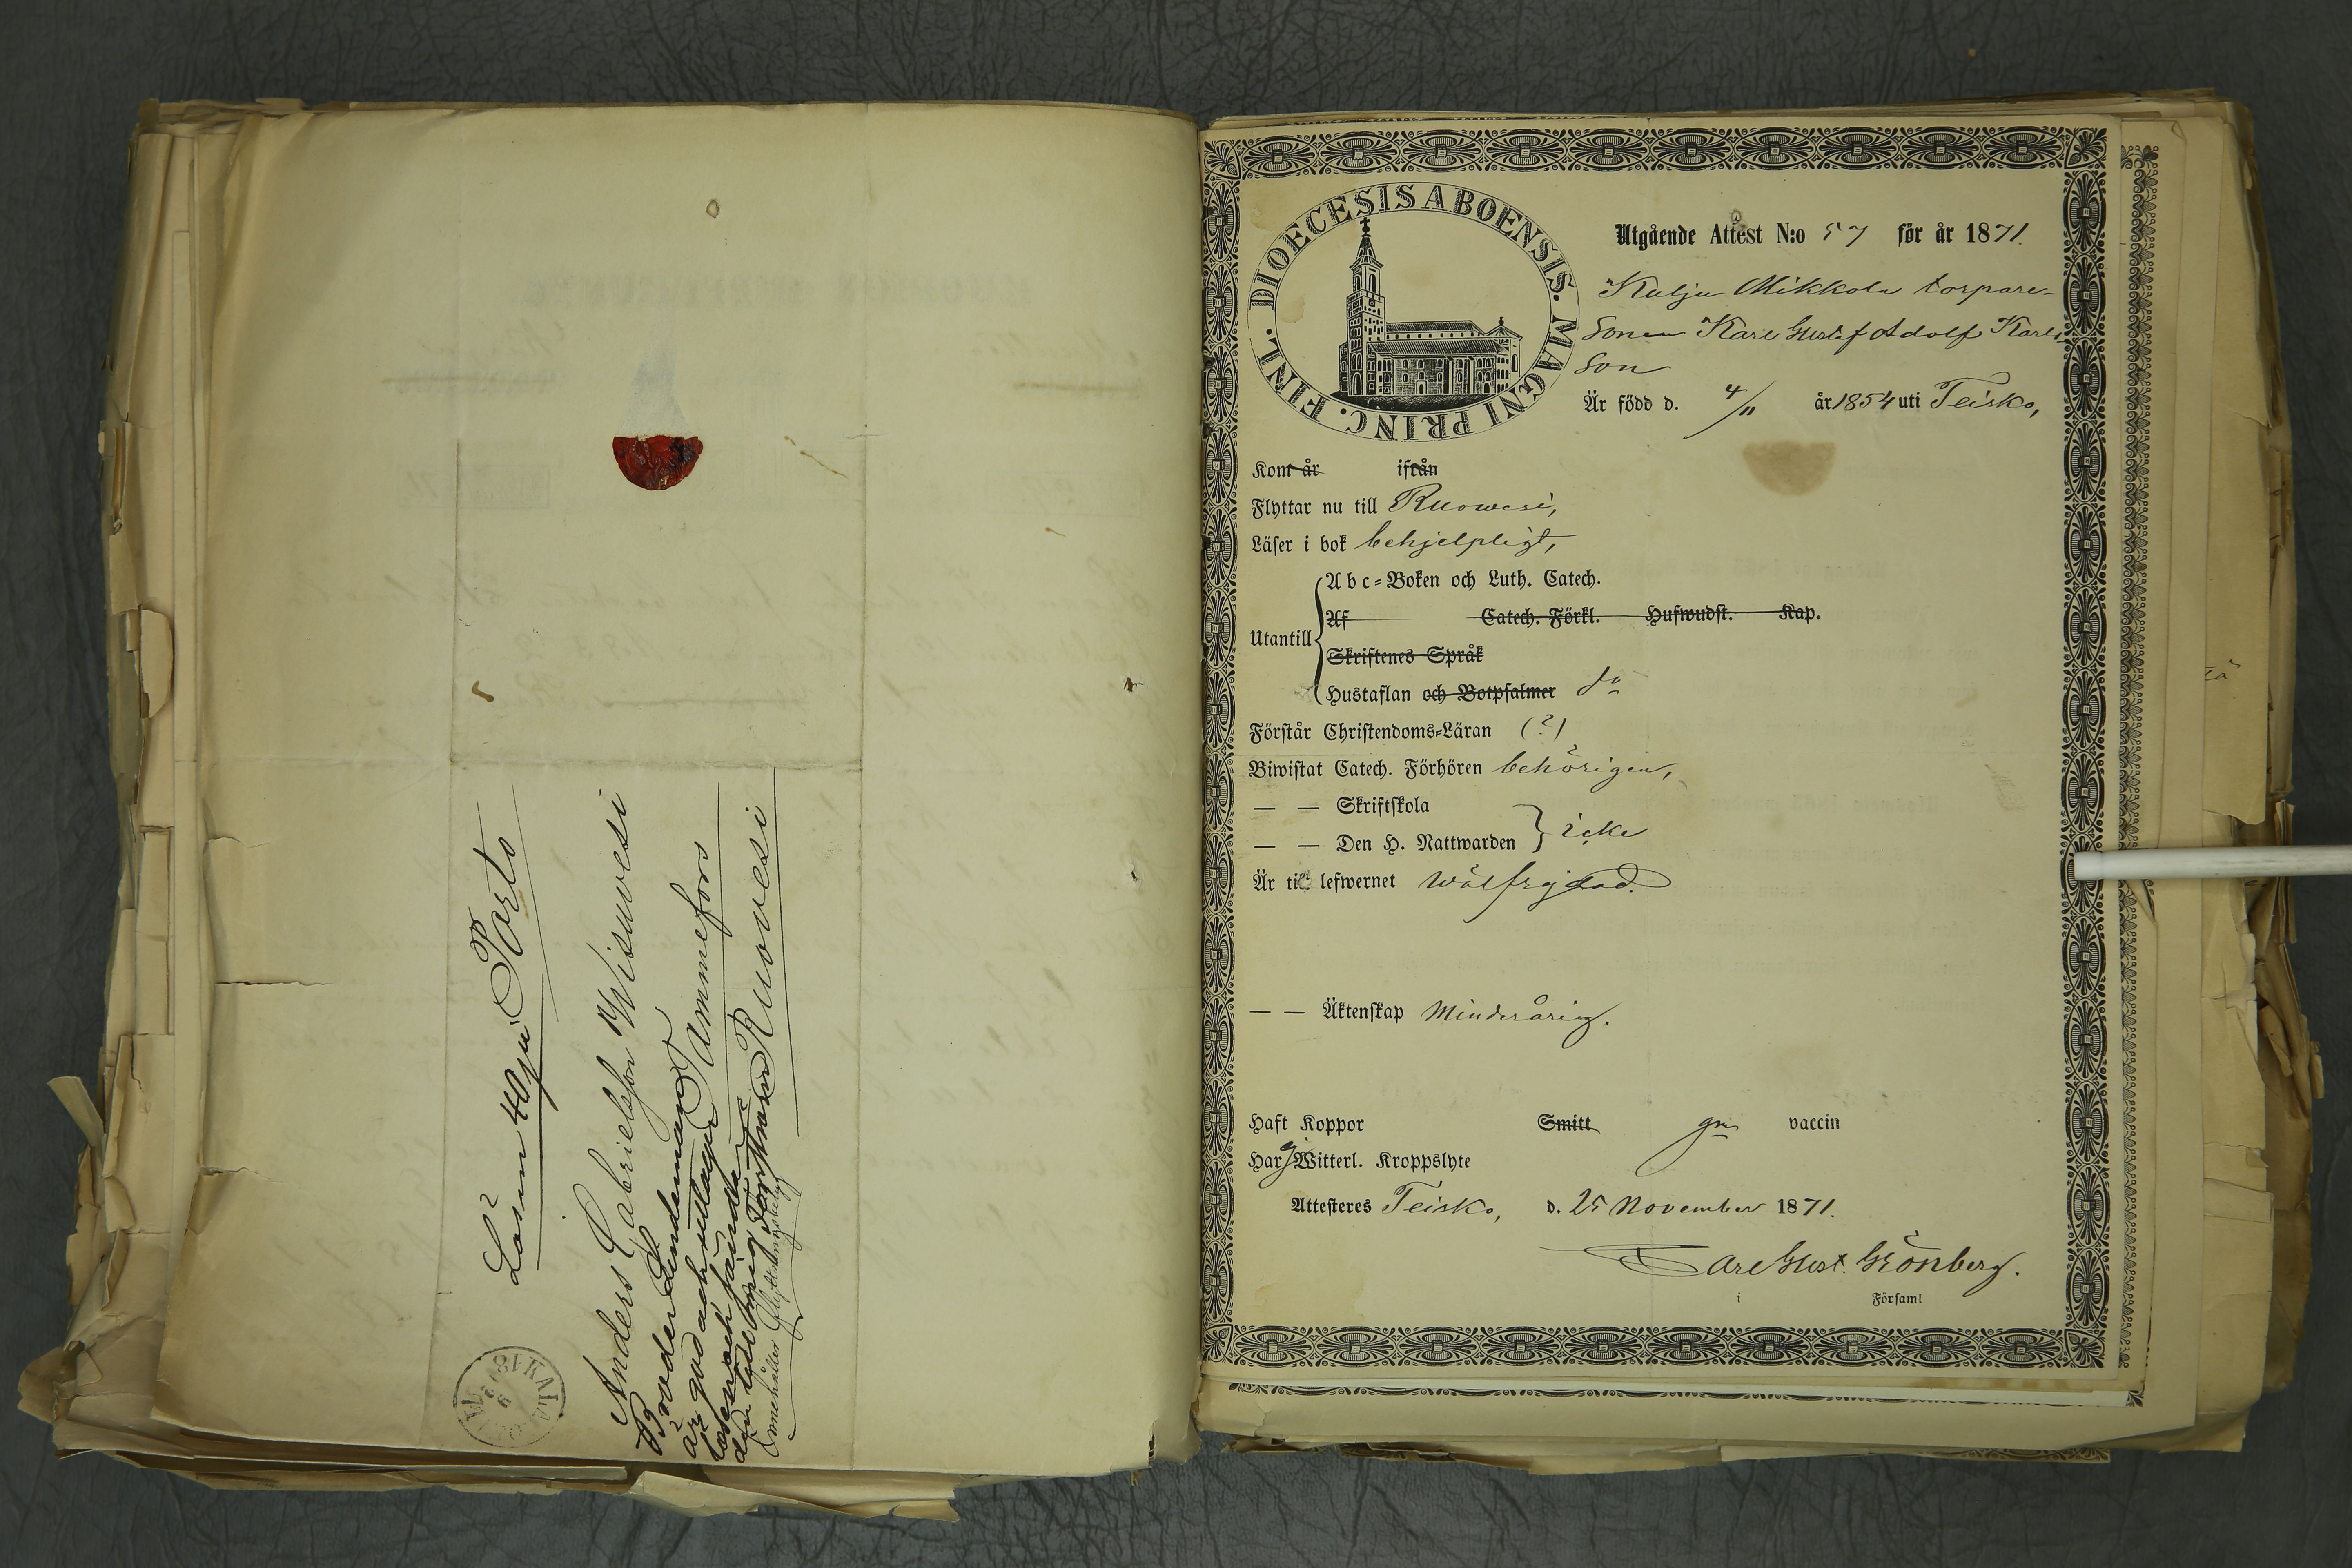 Lösen 40 pi Porto
Anders Gabrielsson Wisuvesi
Broder Lindeman Tammefors
är god och uttager
lösen och
Ruovesi
Innehåller flyttningsbetyg
DIOECESIS ABOENSIS. MAGNI PRINC. FINL.
Utgående Attest N:o 57 för år 1871.
Kulju Mikkola torpare-
sonen Karl Gustaf Adolf Karls-
son
Är född d. 4/11 år 1854 uti Teisko,
Kom år ifrån
Flyttar nu till Ruowesi,
Läser i bok behjelpligt,
Utantill
Abc-Boken och Luth. Catech.
Af Catech. Förkl. Hufwudst. Kap.
Skriftenes Språk
Hustaflan och Botpsalmer do
Förstår Christendoms-Läran (?)
Biwistat Catech. Förhören behörigen,
— — Skriftskola
— — Den H. Nattwarden } icke
Är till lefwernet wälfrejdad.
— — Äktenskap Minderårig.
Haft Koppor Smitt gm vaccin
Har ej Witterl. Kroppslyte
Attesteres Teisko, d. 25 November 1871.
Carl Gust. Grönberg.
i Församl